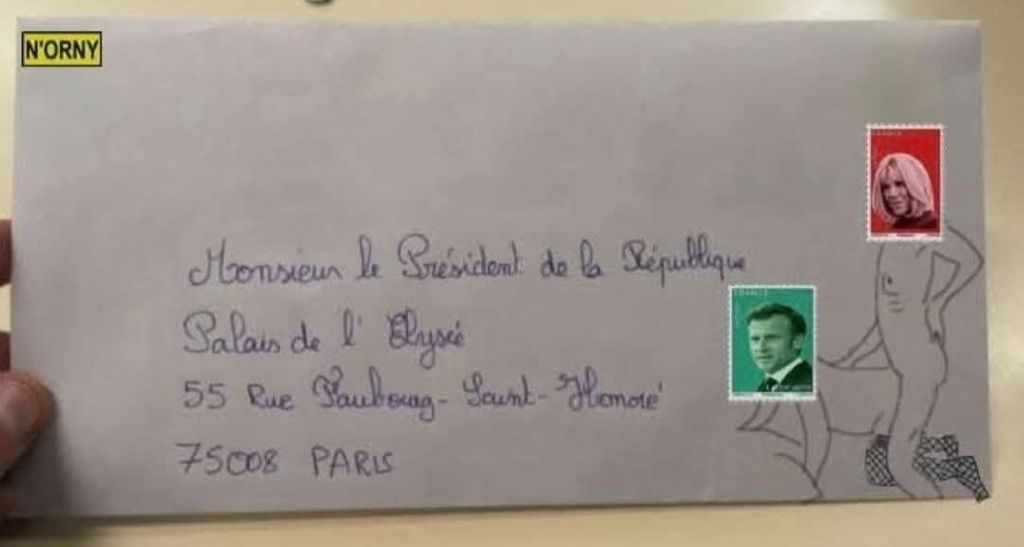 N'ORNY
FRANCE
Monsieur le Président de la République
FRANCE
Palais de l' Elysée
55 Rue Faubourg-Saint-Honoré
75008 PARIS